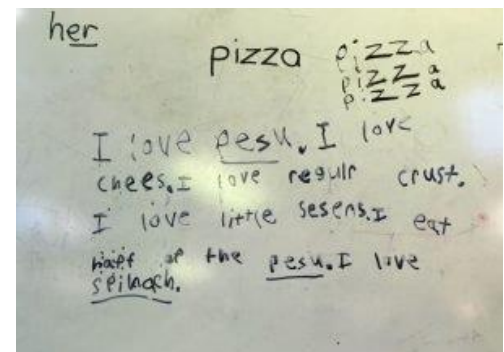 her
pizza pizza
pizza
pizza
I love pesu. I love
chees. I love regulr crust.
I love little sesens. I eat
half of the pesu. I love
spinach.